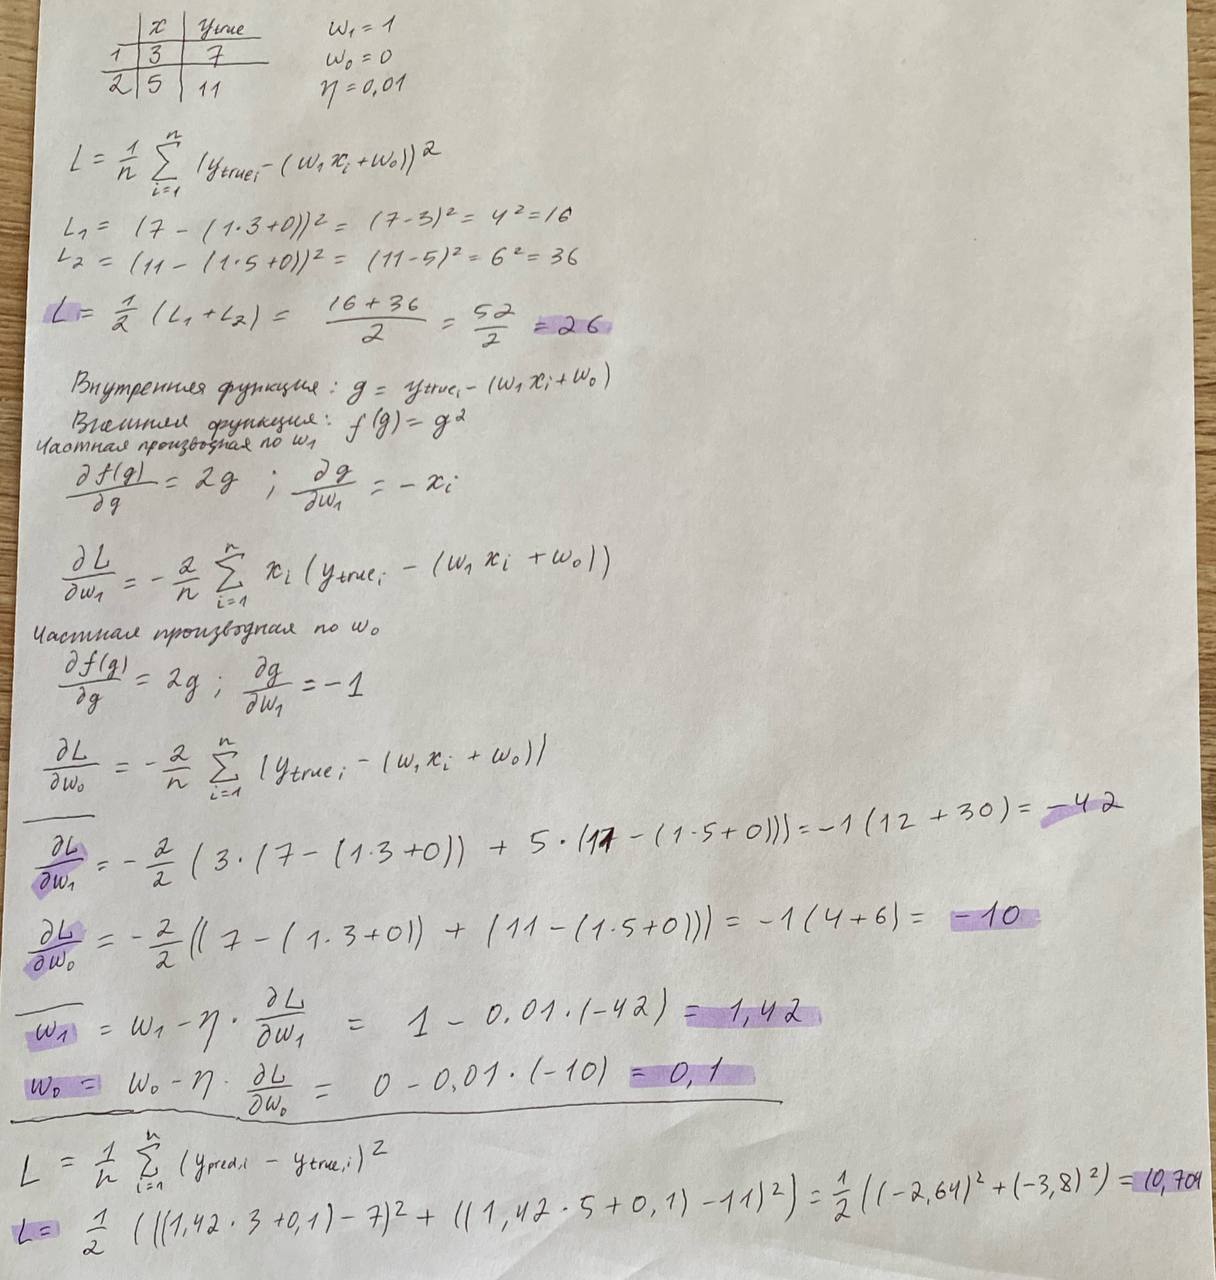 x y true w₁ = 1
1 3 7 w₀ = 0
2 5 11 η = 0,01
L = 1/n ∑ᵢ₌₁ⁿ (y trueᵢ - (w₁ xᵢ + w₀))²
L₁ = (7 - (1·3+0))² = (7-3)² = 4² = 16
L₂ = (11 - (1·5+0))² = (11-5)² = 6² = 36
L = 1/2 (L₁+L₂) = (16+36)/2 = 52/2 = 26
Внутренняя функция: g = y trueᵢ - (w₁ xᵢ + w₀)
Внешняя функция: f(g) = g²
Частная производная по w₁
∂f(g)/∂g = 2g ; ∂g/∂w₁ = - xᵢ
∂L/∂w₁ = - 2/n ∑ᵢ₌₁ⁿ xᵢ (y trueᵢ - (w₁ xᵢ + w₀))
Частная производная по w₀
∂f(g)/∂g = 2g ; ∂g/∂w₁ = -1
∂L/∂w₀ = - 2/n ∑ᵢ₌₁ⁿ (y trueᵢ - (w₁ xᵢ + w₀))
∂L/∂w₁ = - 2/2 (3·(7-(1·3+0)) + 5·(11-(1·5+0))) = -1(12+30) = -42
∂L/∂w₀ = - 2/2 ((7-(1·3+0)) + (11-(1·5+0))) = -1(4+6) = -10
w₁ = w₁ - η · ∂L/∂w₁ = 1 - 0.01·(-42) = 1,42
w₀ = w₀ - η · ∂L/∂w₀ = 0 - 0,01·(-10) = 0,1
L = 1/n ∑ᵢ₌₁ⁿ (y pred,i - y true,i)²
L = 1/2 (((1,42·3+0,1)-7)² + ((1,42·5+0,1)-11)²) = 1/2 ((-2,64)² + (-3,8)²) = 10,704